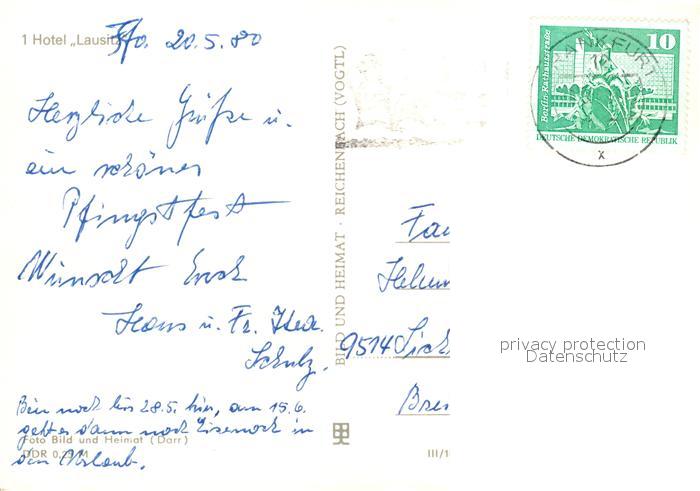 1 Hotel „Lausitz
Ffo. 20.5.80
Herzliche Grüße u.
ein schönes
Pfingstfest
Wünscht Euch
Hans u. Fr. Thea
Schulz.
Bin noch bis 28.5. hier, am 15.6.
geht es dann nach Eisenach in
den Urlaub.
Foto Bild und Heimat (Darr)
DDR 0,20 M
BILD UND HEIMAT · REICHENBACH (VOGTL)
III/1
10
Berlin-Rathausstraße
DEUTSCHE DEMOKRATISCHE REPUBLIK
FRANKFURT
x
Fa
Helm
9514
privacy protection
Datenschutz